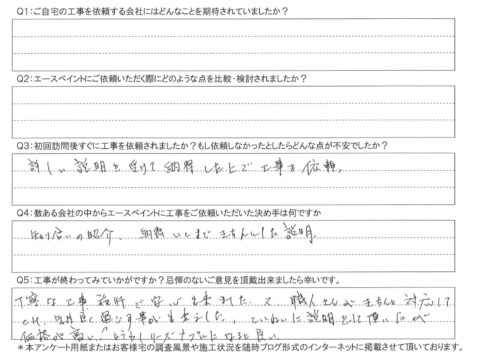 Q1：ご自宅の工事を依頼する会社にはどんなことを期待されていましたか？
Q2：エースペイントにご依頼いただく際にどのような点を比較・検討されましたか？
Q3：初回訪問後すぐに工事を依頼されましたか？もし依頼しなかったとしたらどんな点が不安でしたか？
詳しい説明を受けて納得した上で工事を依頼。
Q4：数ある会社の中からエースペイントに工事をご依頼いただいた決め手は何ですか
知り合いの紹介、納得いくまできちんとした説明。
Q5：工事が終わってみていかがですか？忌憚のないご意見を頂戴出来ましたら幸いです。
丁寧な工事施行で安心出来ました。又、職人さんがきちんと対応して
くれ、気持良く過ごす事が出来ました。ていねいに説明をして頂いたが
価格が高い、もう少しリーズナブルになると良い
＊本アンケート用紙またはお客様宅の調査風景や施工状況を随時ブログ形式のインターネットに掲載させて頂いております。